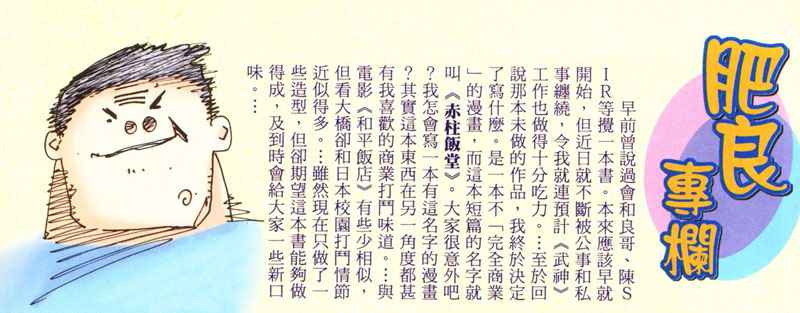 肥良
專欄
早前曾說過會和良哥、陳S
IR等攪一本書。本來應該早就
開始，但近日就不斷被公事和私
事纏繞，令我就連預計《武神》
工作也做得十分吃力。…至於回
說那本未做的作品，我終於決定
了寫什麼。是一本不「完全商業
」的漫畫，而這本短篇的名字就
叫《赤柱飯堂》。大家很意外吧
？我怎會寫一本有這名字的漫畫
？其實這本東西在另一角度都甚
有我喜歡的商業打鬥味道。…與
電影《和平飯店》有些少相似，
但看大橋卻和日本校園打鬥情節
近似得多。…雖然現在只做了一
些造型，但卻期望這本書能夠做
得成，及到時會給大家一些新口
味。…